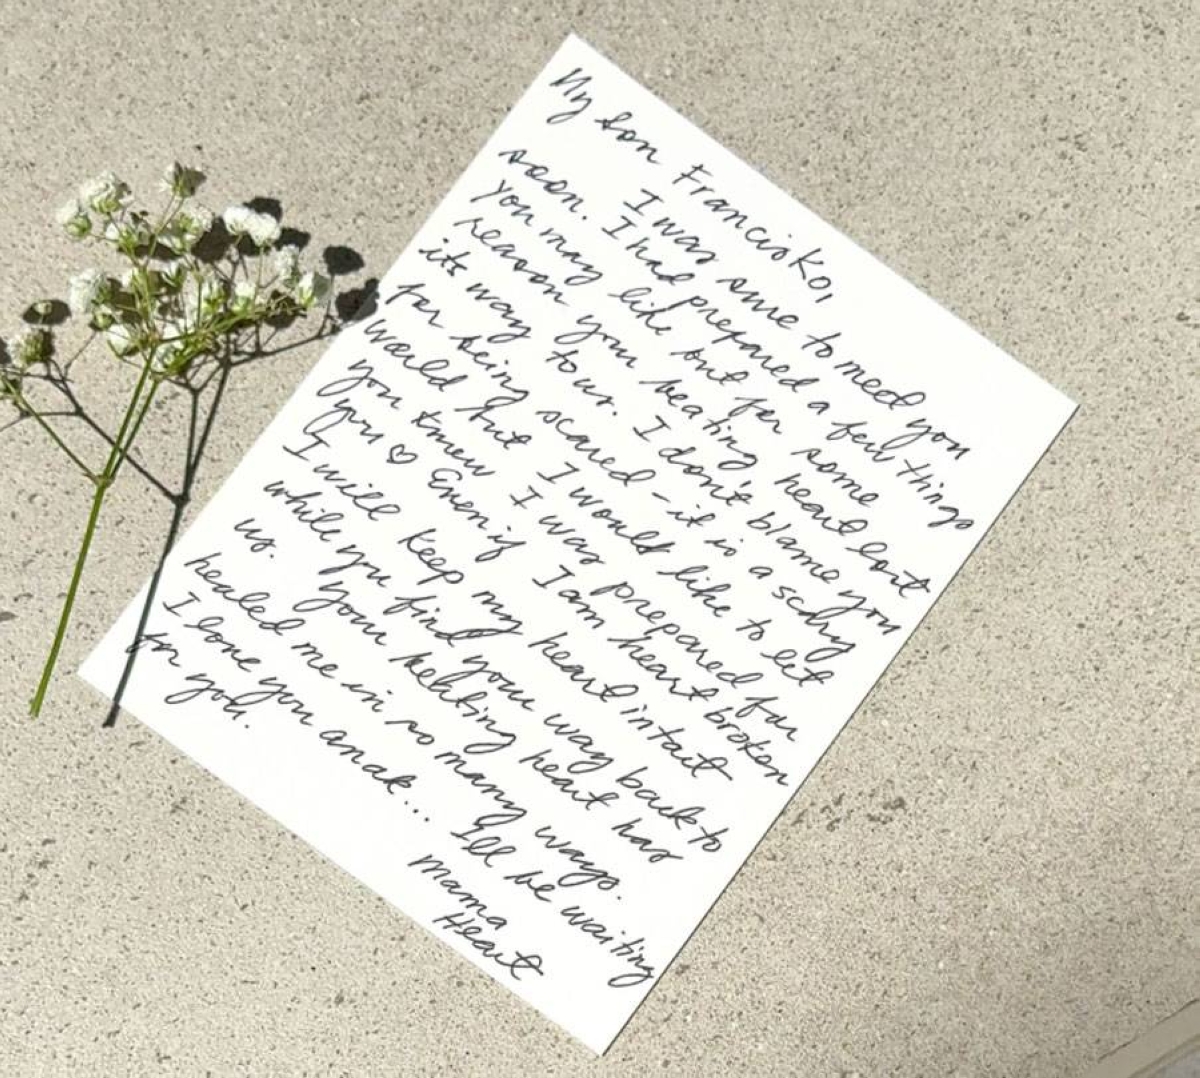 My son Francisko,
I was sure to meet you
soon. I had prepared a few things
you may like but for some
reason your beating heart lost
its way to us. I don't blame you
for being scared - it is a scary
world but I would like to let
you know I was prepared for
you ♡ Even if I am heart broken
I will keep my heart intact
while you find your way back to
us. Your beating heart has
healed me in so many ways.
I love you anak... I'll be waiting
for you.
Mama
Heart